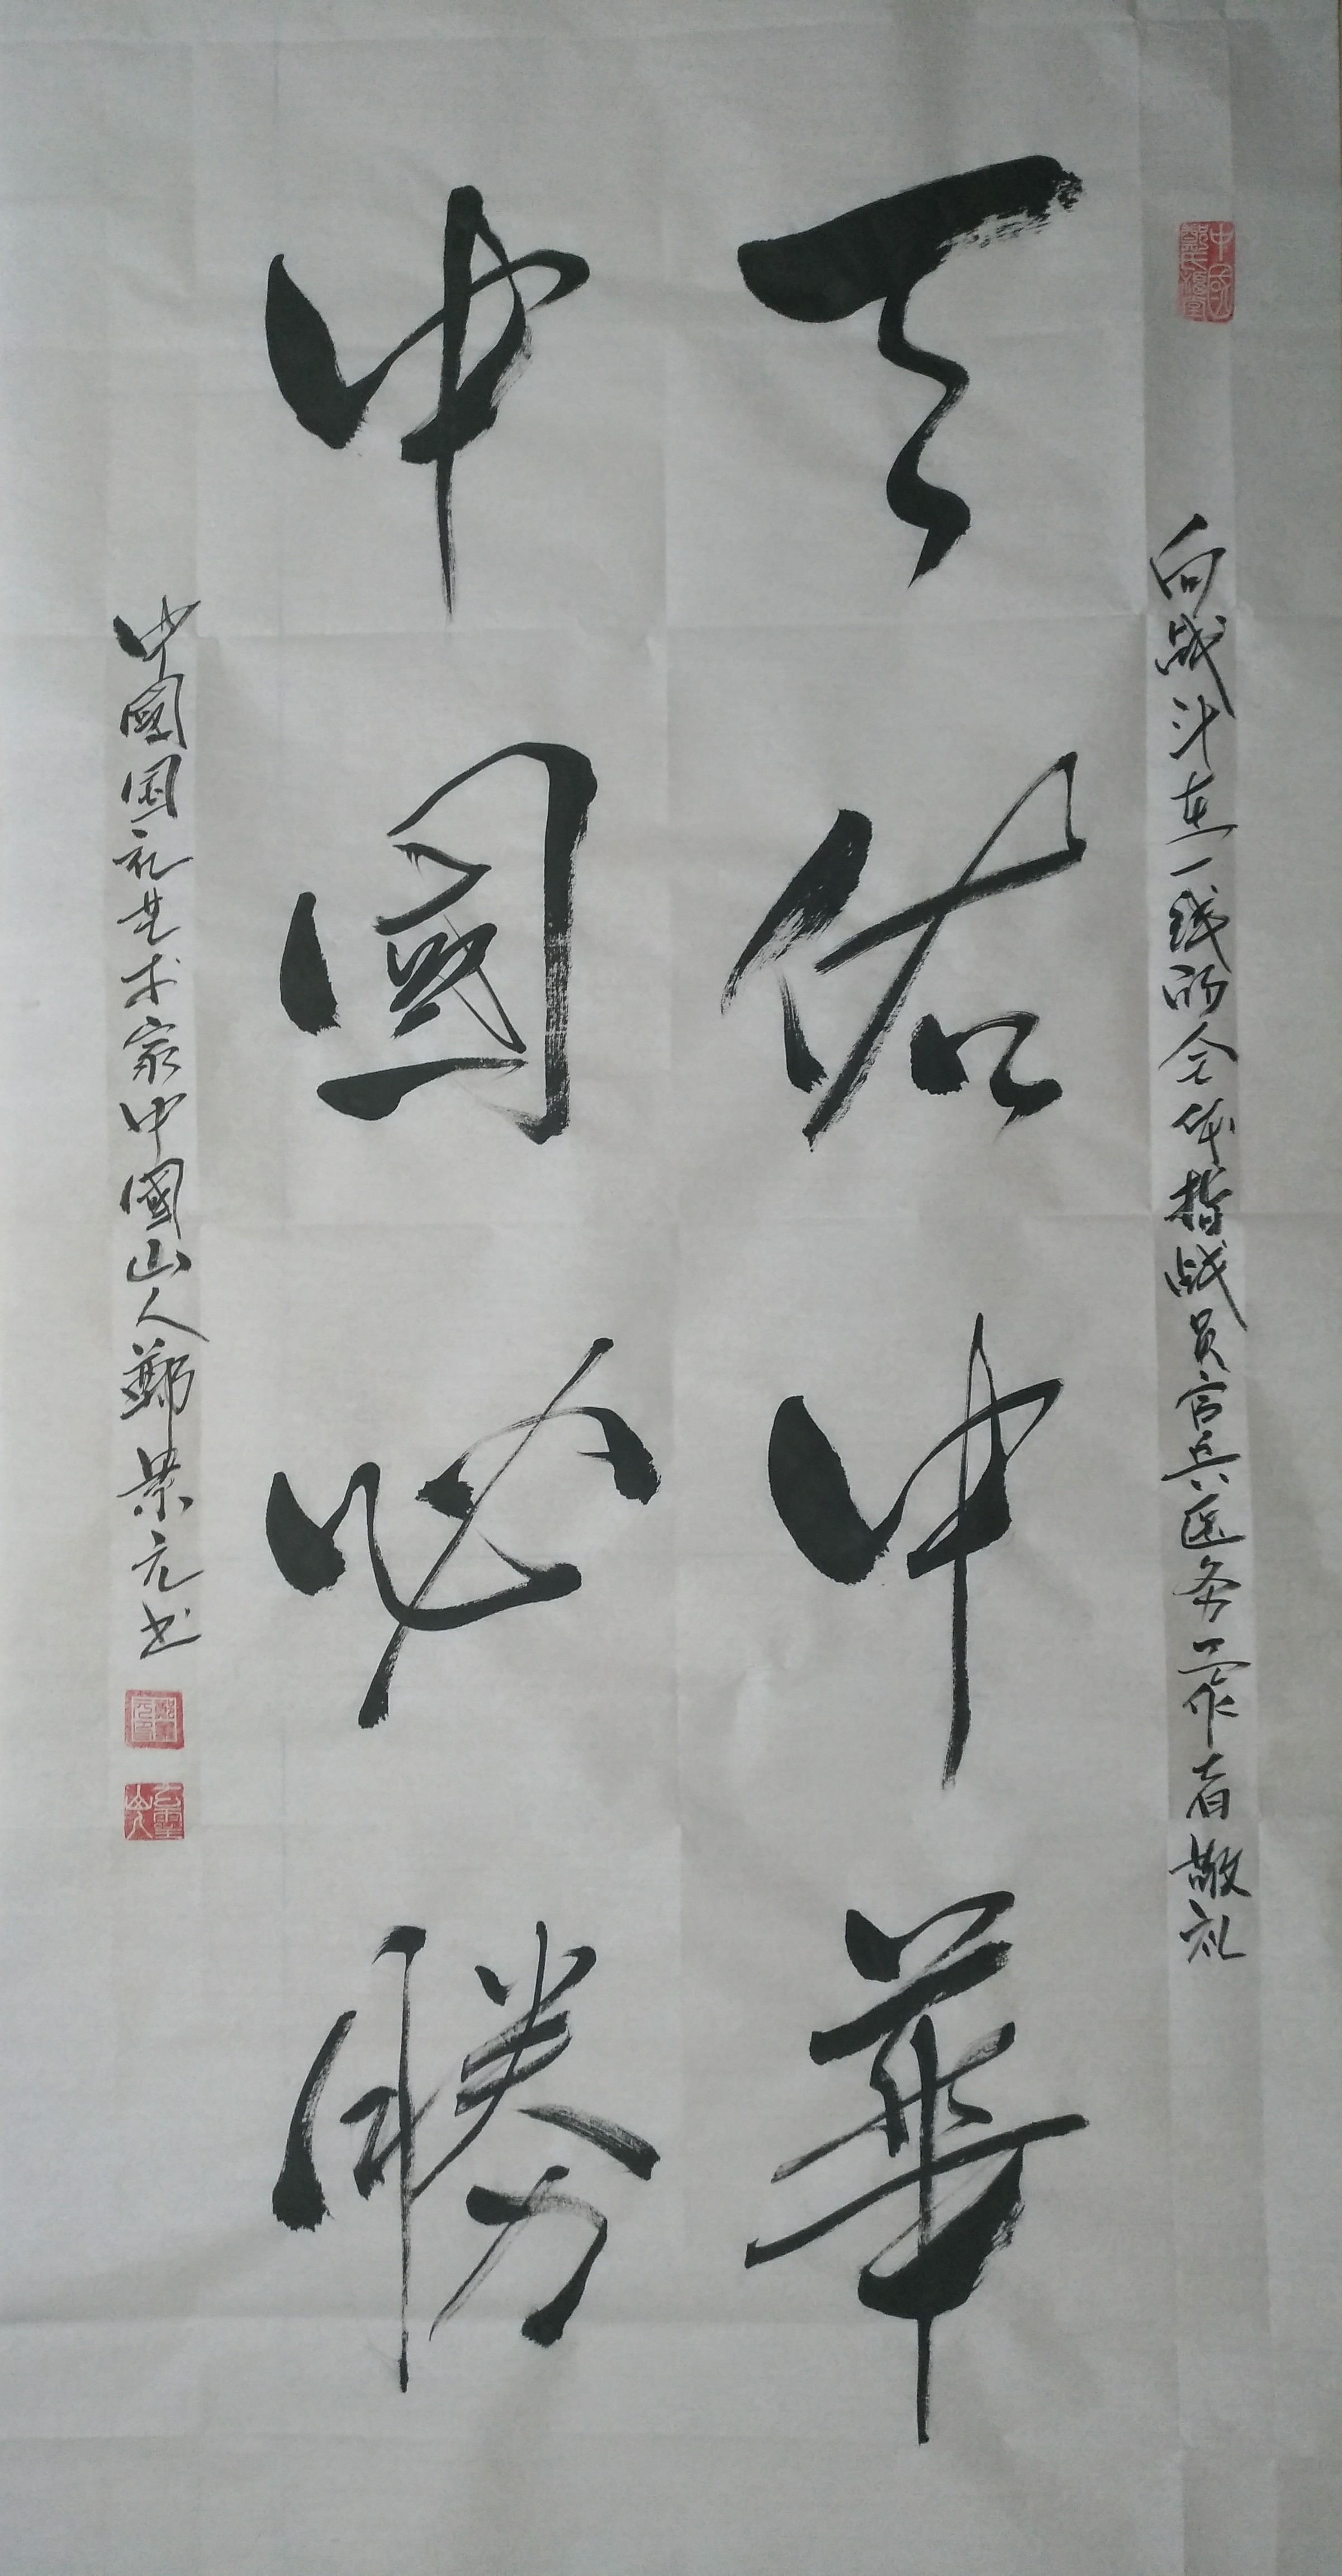 向战斗在一线的全体指战员官兵医务工作者敬礼
天佑中华
中國必勝
中國国礼艺术家中國山人鄭景元书